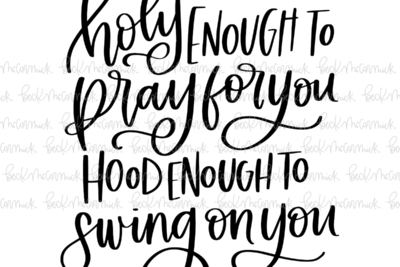 holy ENOUGH TO
pray for you
HOOD ENOUGH TO
swing on you